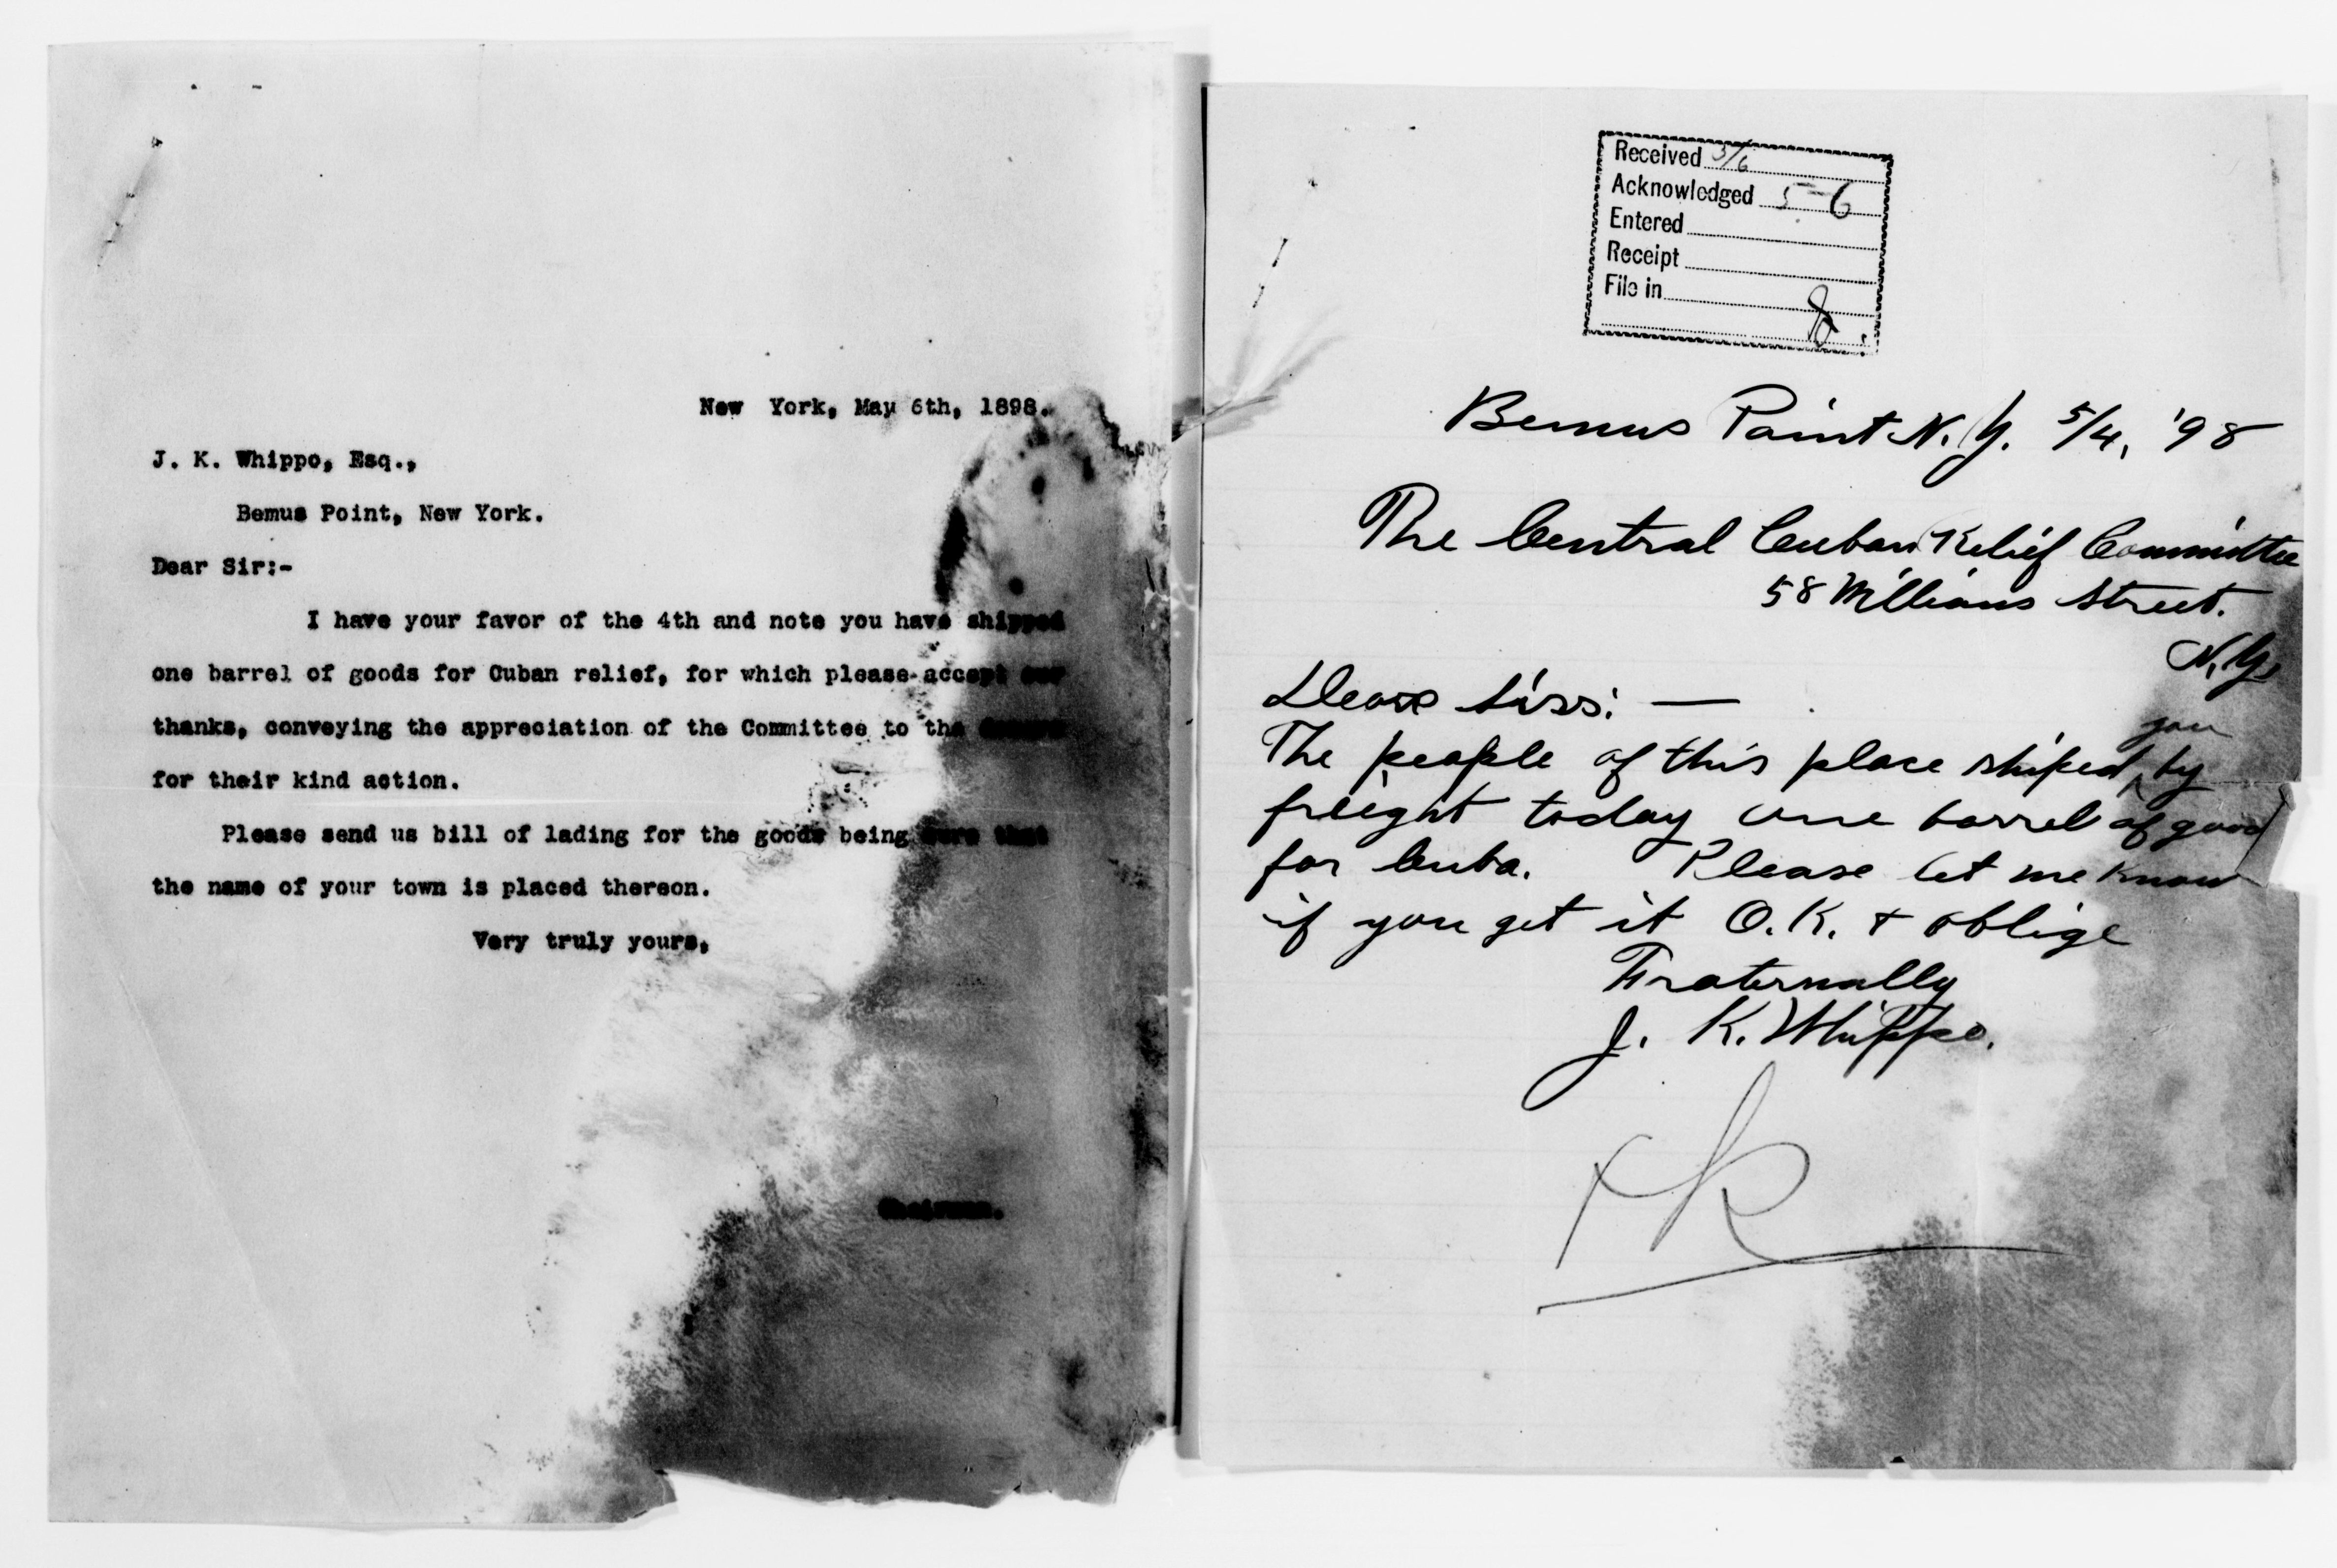 New York, May 6th, 1898.
J. K. Whippo, Esq.,
Bemus Point, New York.
Dear Sir:-
I have your favor of the 4th and note you have shipped
one barrel of goods for Cuban relief, for which please accept our
thanks, conveying the appreciation of the Committee to the donors
for their kind action.
Please send us bill of lading for the goods being sure that
the name of your town is placed thereon.
Very truly yours,
Chairman.
Received 5/6
Acknowledged 5-6
Entered
Receipt
File in
Bemus Point N.Y. 5/4, '98
The Central Cuban Relief Committee
58 Williams Street.
N.Y.
Dear Sirs: —
The people of this place shiped you by
freight today one barrel of good
for Cuba. Please let me know
if you get it O.K. & oblige
Fraternally
J. K. Whippo.